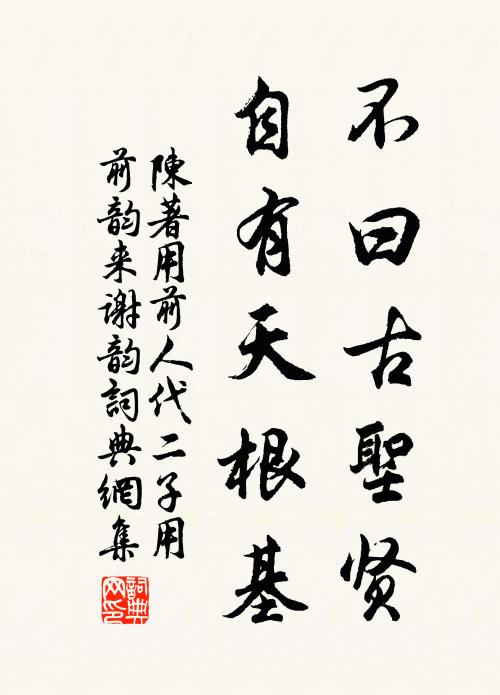 不曰古聖贤
自有天根基
陳著用前人代二子用
前韵来谢韵詞典網集
詞典網印